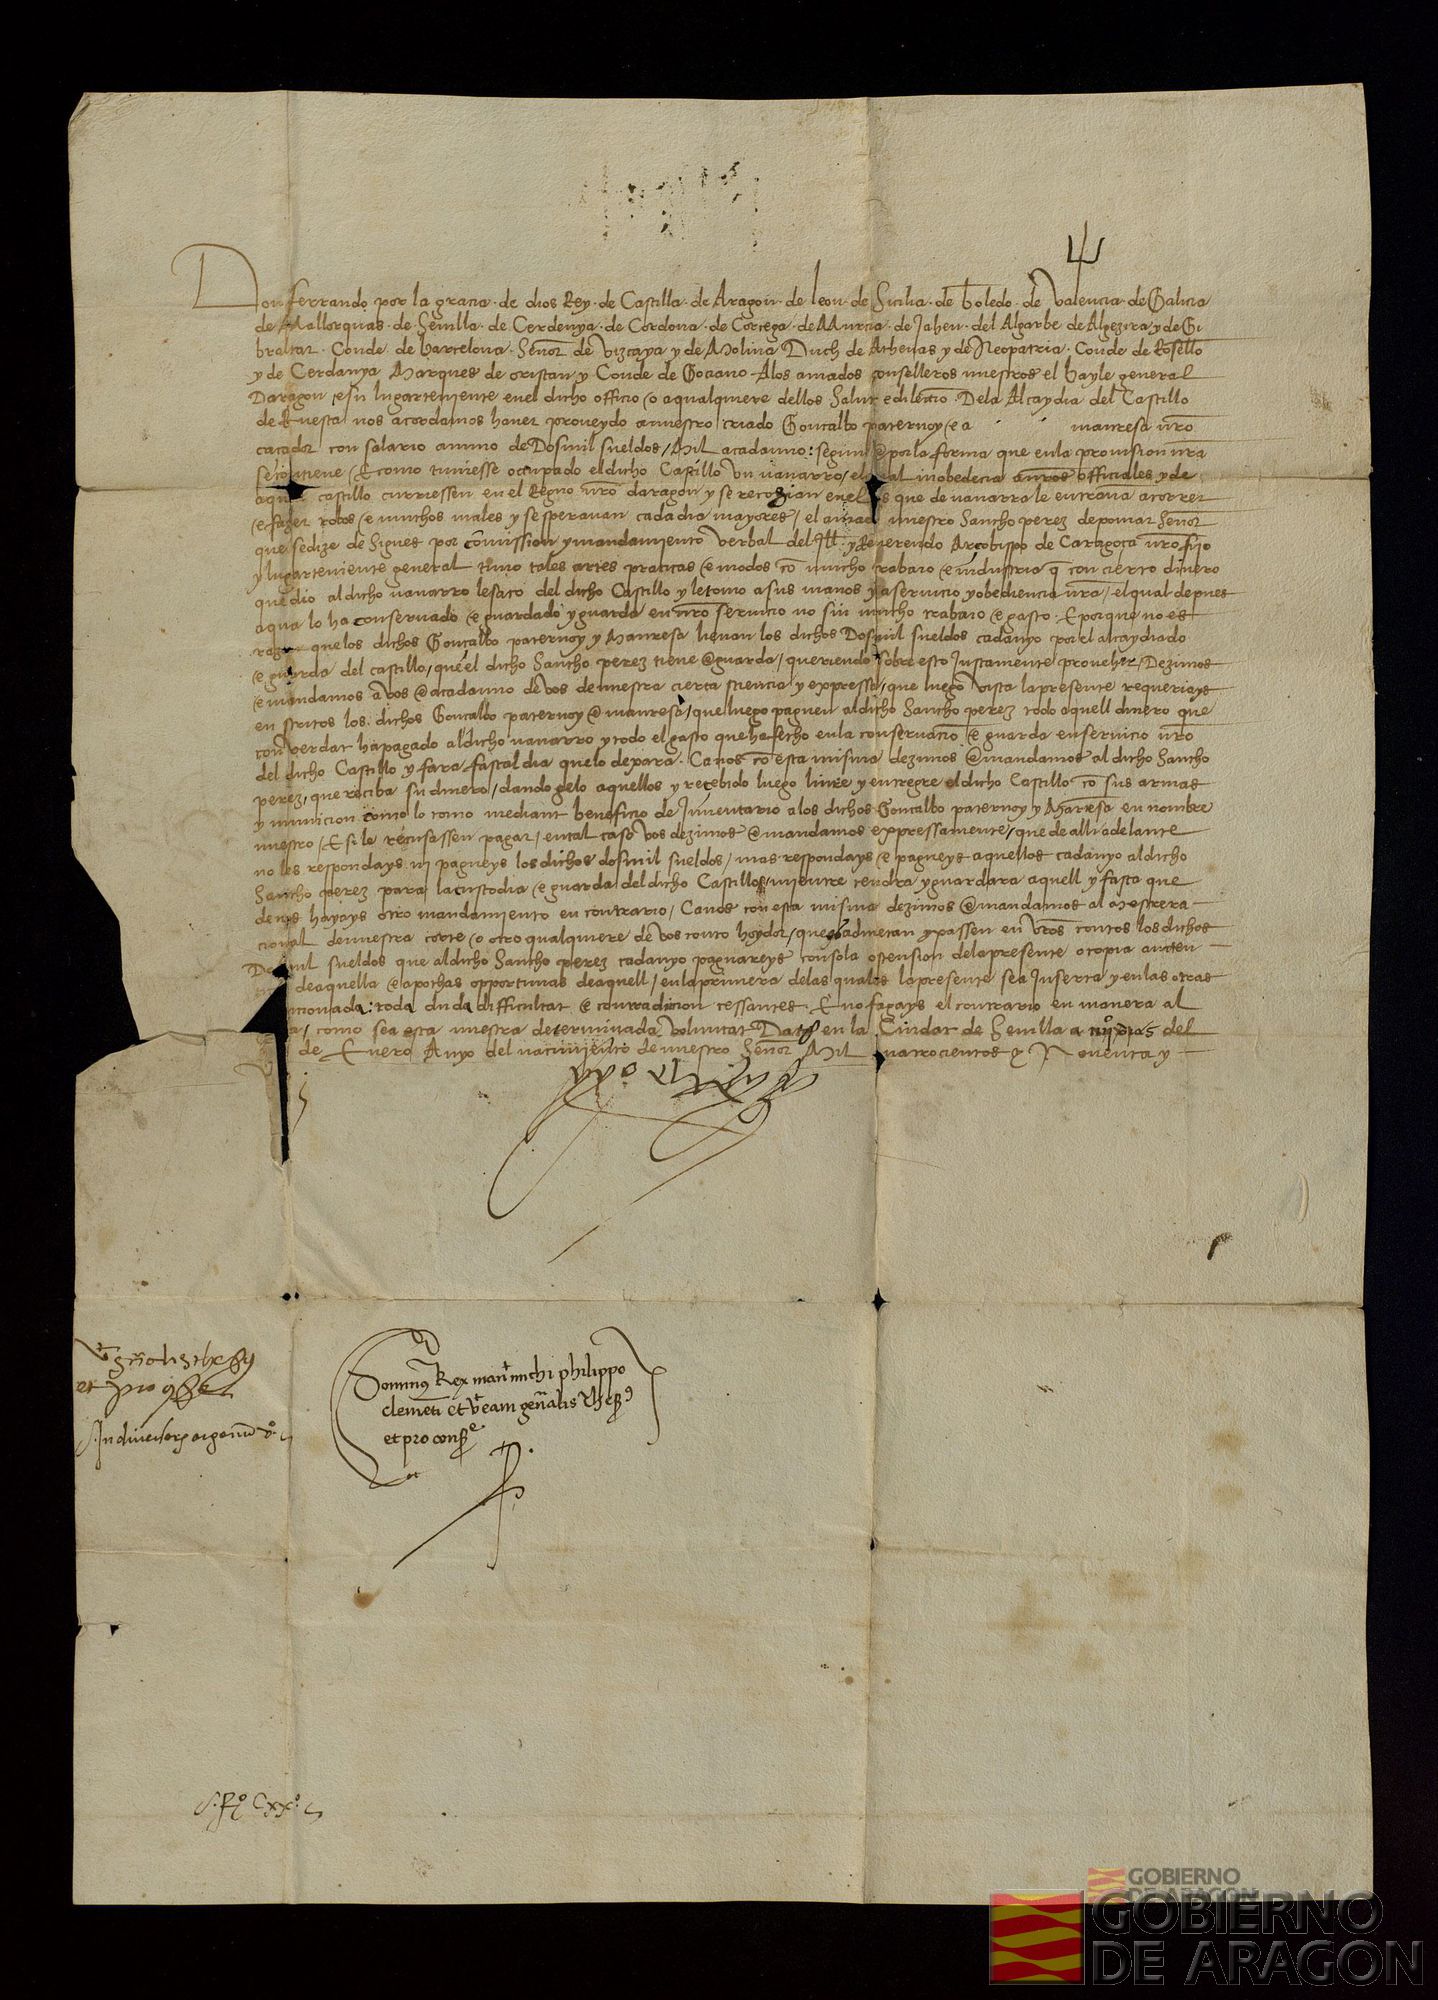 Don Ferrando por la gracia de dios Rey de Castilla de Aragon de leon de Sicilia de Toledo de Valencia de Galicia
de Mallorquas de Sevilla de Cerdenya de Cordova de Corcega de Murcia de Jahen del Algarbe de Algezira y de Gi
braltar Conde de barcelona Señor de Vizcaya y de Molina Duch de Athenas y de Neopatria Conde de Rossello
y de Cerdanya Marques de oristan y Conde de Gociano Alos amados conselleros nuestros el bayle general
Daragon e su lugarteniente en el dicho officio o a qualquiere dellos Salut e dilectio Dela Alcaydia del Castillo
de Ruesta nos acordamos haver proveydo a nuestro criado Goncalbo paternoy e a manresa nr̃o
cacador con salario annuo de Dosmil sueldos Mil acadauno segun e por la forma que en la provision nr̃a
se contiene E como tuviesse ocupado el dicho Castillo un navarro el qual inobedecia a nr̃os officiales y de
aquel castillo curriessen en el Regno nr̃o daragon y se recogian en el los que de navarra le entravan acorrer
e fazer robos e muchos males y se speravan cada dia mayores el amado nuestro Sancho perez de pomar Señor
que se dize de Sigues por cõmission y mandamiento verbal del Ill. y Reverendo Arcobispo de Caragoca nr̃o fijo
y lugarteniente general tuvo tales artes praticas e modos cõ mucho trabaio e industria q̃ con cierto dinero
que dio al dicho navarro le saco del dicho Castillo y le tomo a sus manos y a servicio y obediencia nr̃a el qual depues
aqua lo ha conservado e guardado y guarda en nr̃o servicio no sin mucho trabaio e gasto E porque no es
razon que los dichos Goncalbo paternoy y Manresa lievan los dichos Dosmil sueldos cadanyo por el alcaydiado
e guarda del castillo que el dicho Sancho perez tiene e guarda queriendo sobre esto Justamente provehir Dezimos
e mandamos a vos e acadauno de vos de nuestra cierta sciencia y expressa que luego vista la presente requeriays
en scritos los dichos Goncalbo paternoy e manresa que luego paguen al dicho Sancho perez todo aquell dinero que
con verdat ha pagado al dicho navarro y todo el gasto que ha fecho en la conservacio e guarda en servicio nr̃o
del dicho Castillo y fara fasta l dia que lo dexara Ca nos cõ esta misma dezimos e mandamos al dicho Sancho
perez que reciba su dinero dandogelo aquellos y recebido luego liure y entregre el dicho Castillo cõ sus armas
y municion como lo tomo mediant beneficio de Inventario alos dichos Goncalbo paternoy y Manresa en nombre
nuestro E si le recusassen pagar en tal caso vos dezimos e mandamos expressamente que de alli adelante
no les respondays ni pagueys los dichos dosmil sueldos mas respondays e pagueys aquellos cadanyo al dicho
Sancho perez para la custodia e guarda del dicho Castillo mientre tendra y guardara aquell y fasta que
de nos hayays otro mandamiento en contrario Ca nos con esta misma dezimos e mandamos al Mestre ra
cional de nuestra corte o otro qualquiere de vos conto hoydor que os admetan y passen en vr̃os contos los dichos
Dosmil sueldos que al dicho Sancho perez cadanyo pagareys con sola ostension dela presente o copia auten
de aquella e apochas opportunas de aquell en la primera delas quales la presente sea Inserta y en las otras
mencionada toda duda difficultat e contradicion cessantes E no fagays el contrario en manera al
como sea esta nuestra determinada voluntat Dat en la Ciudat de Sevilla a dias del
de Enero Anyo del nacimiento de nuestro Señor Mil quatrocientos e Noventa y
Vt gñalis thes
et pro
Dominus Rex man^t michi philippo
clemeñti et vt eam geñalis thes
et pro
In diversorum aragonum
GOBIERNO
DE ARAGON
GOBIERNO
DE ARAGON